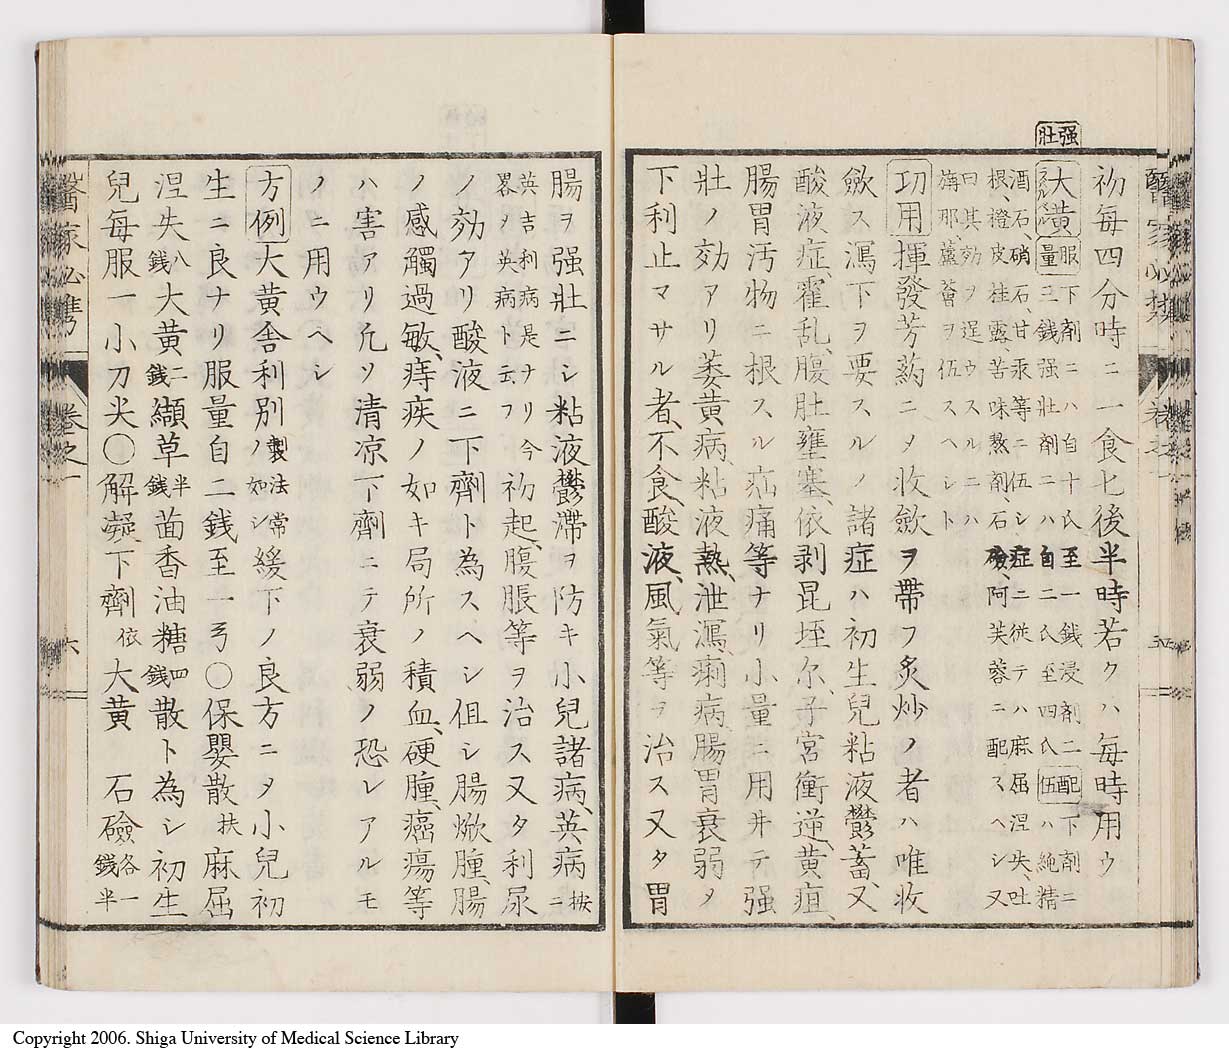 强壯
初每四分時ニ一食匕後半時若クハ每時用ウ
大黃 服量
下劑ニハ自十氏至一銭浸劑二
三銭强壯劑ニハ自二氏至四氏
配伍
下劑ニハ純精
酒石、硝石、甘汞等ニ伍シ症ニ従テハ麻屈涅失、吐
根、橙皮、桂露、苦味熱劑石礆、阿芙蓉ニ配スヘシ又
曰其効ヲ逞ウスルニハ
旃那、蘆薈ヲ伍スヘシト
功用 揮發芳葯ニメ收斂ヲ帶フ炙炒ノ者ハ唯收
斂ス瀉下ヲ要スルノ諸症ハ初生兒粘液鬱蓄、又
酸液症、霍乱、腹肚壅塞、依剥昆垤尔、子宮衝逆、黃疸、
腸胃汚物ニ根スル疝痛等ナリ小量ニ用井テ强
壯ノ効アリ萎黃病、粘液熱、泄瀉、痢病、腸胃衰弱メ
下利止マサル者、不食、酸液、風氣等ヲ治ス又タ胃
腸ヲ强壯ニシ粘液鬱滯ヲ防キ小兒諸病、英病按ニ
英吉利病是ナリ今
畧ノ英病ト云フ
初起、腹脹等ヲ治ス又タ利尿
ノ効タリ酸液ニ下劑ト為スヘシ但シ腸焮腫、腸
ノ感觸過敏、痔疾ノ如キ局所ノ積血、硬腫、癌瘍等
ハ害アリ凢ソ清凉下劑ニテ衰弱ノ恐レアルモ
ノニ用ウヘシ
方例 大黃舎利別製法常ノ如シ緩下ノ良方ニタ小兒初
生ニ良ナリ服量自二銭至一弓〇保嬰散扶麻屈
涅失八銭大黃二銭纈草半銭茴香油糖四銭散ト為シ初生
兒每服一小刀尖〇解凝下劑依大黃 石礆各一銭半
醫家必携 卷之一 六